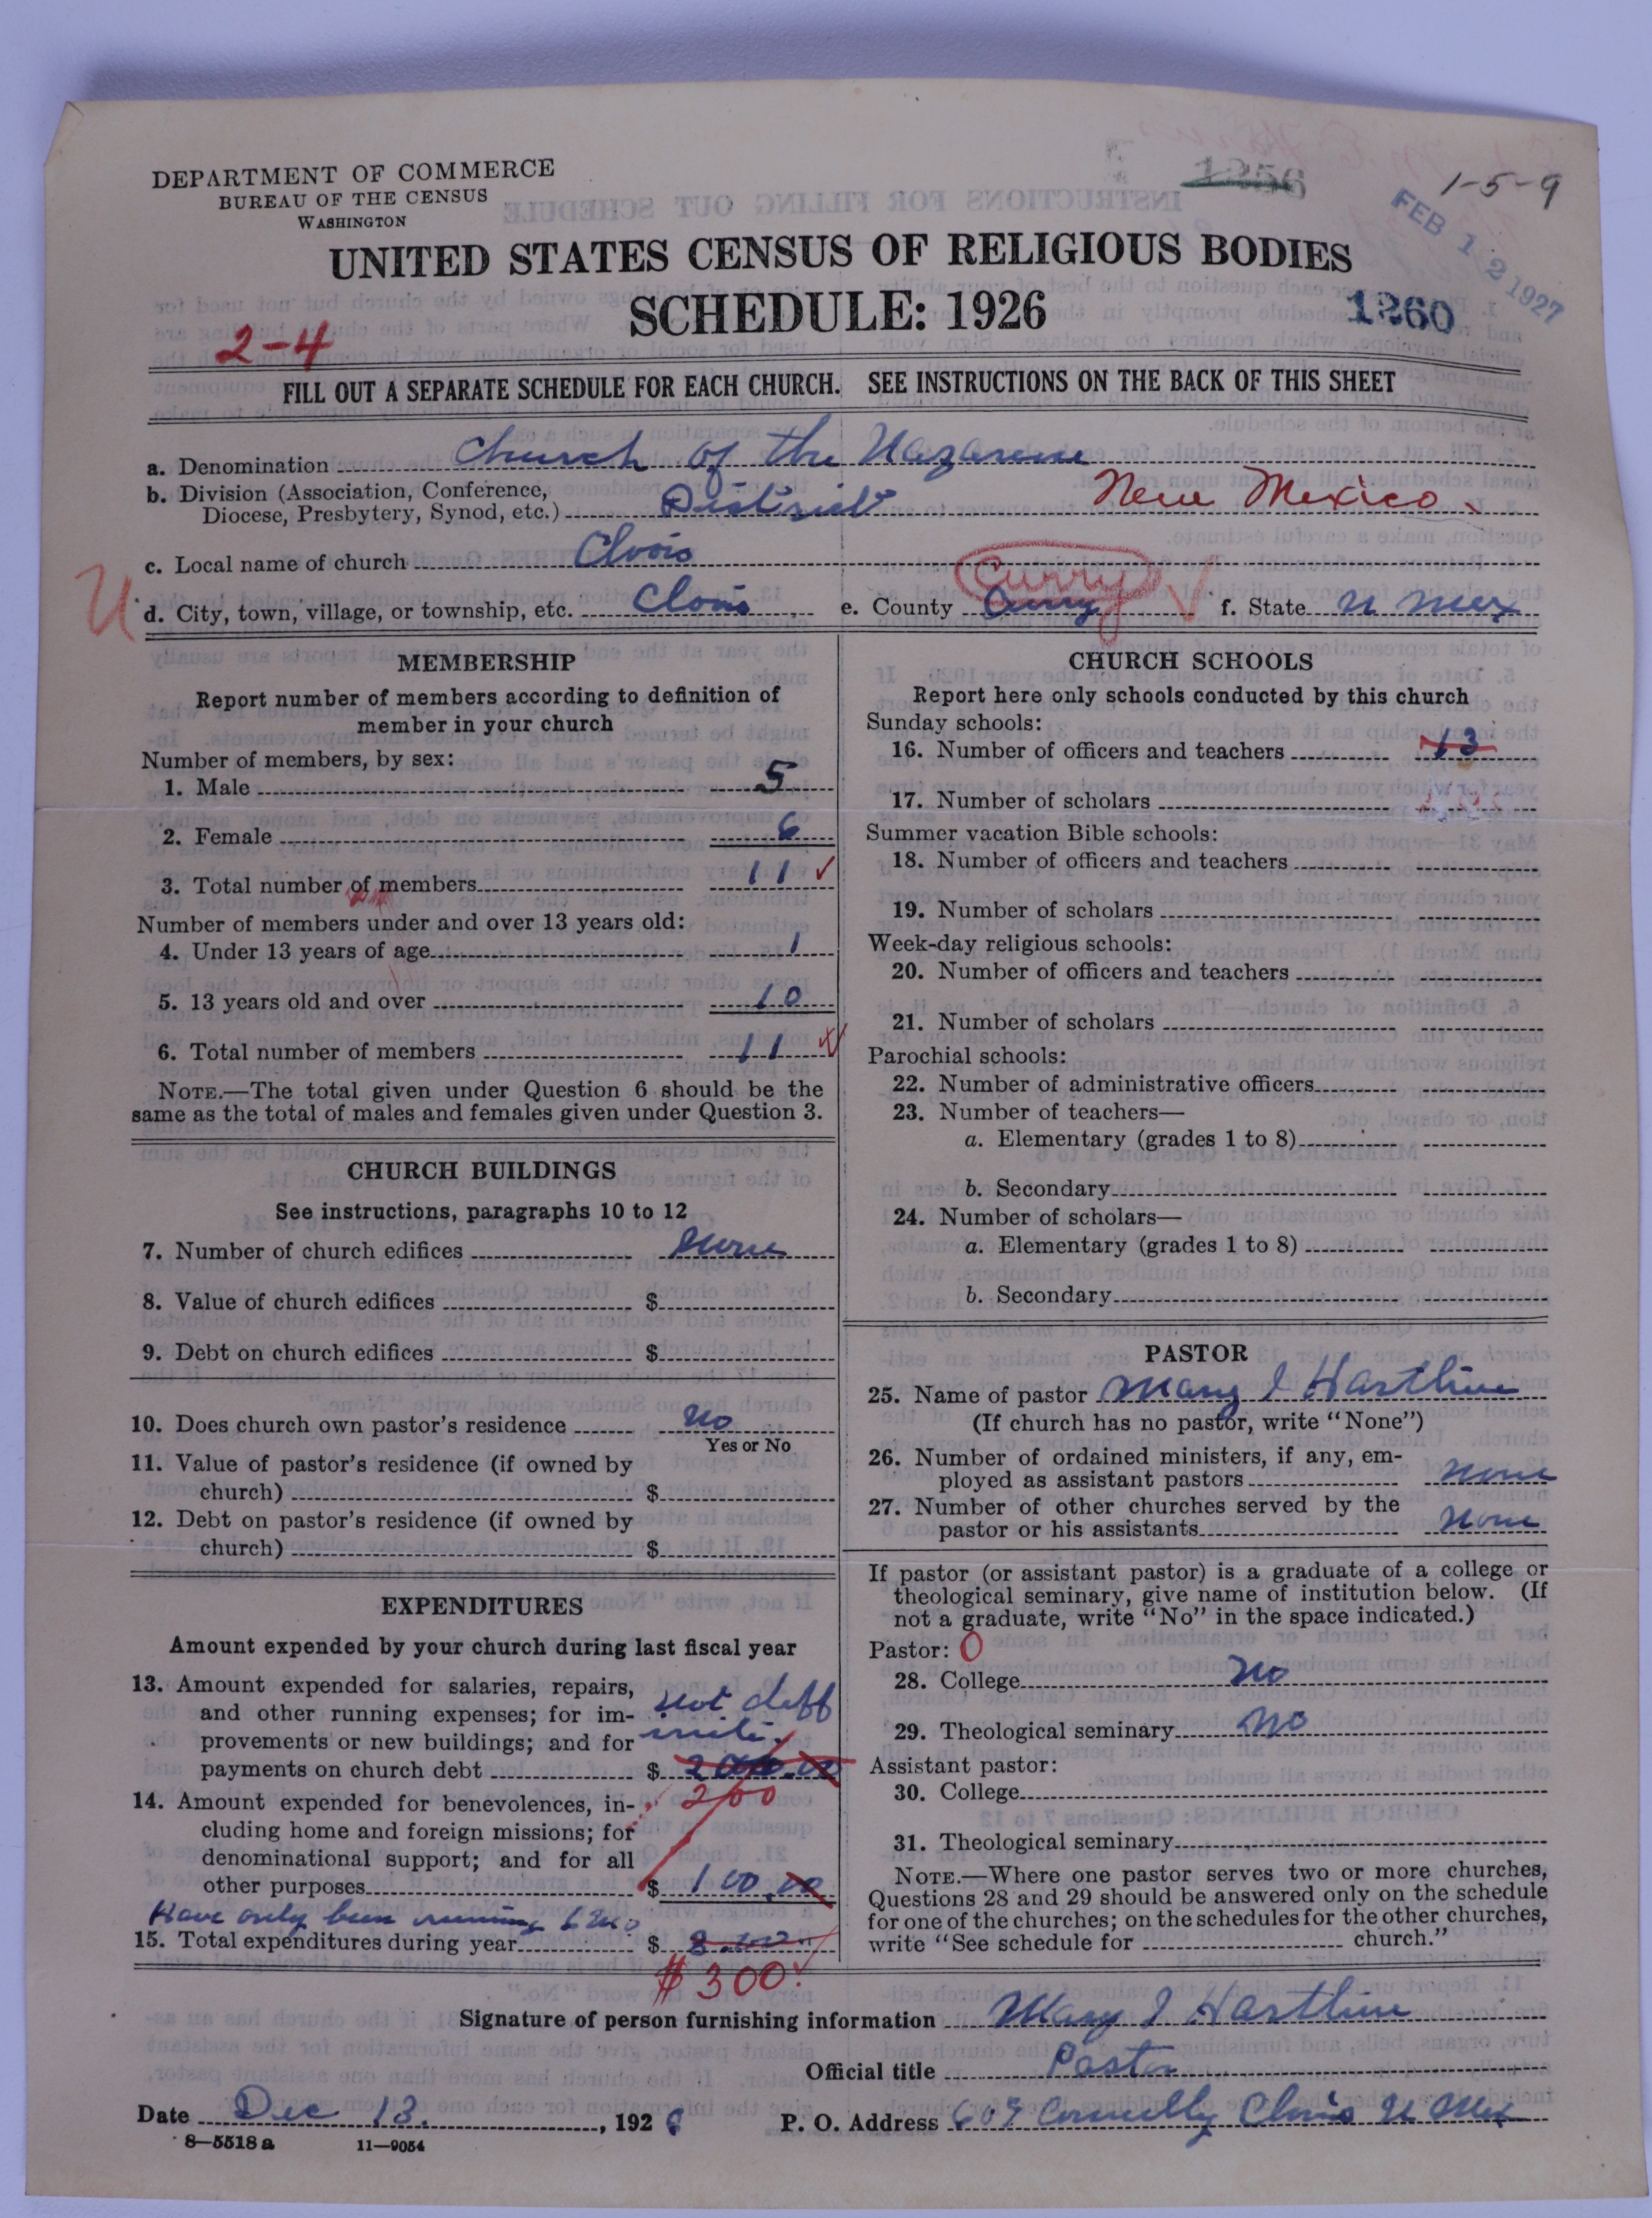 1-5-9
DEPARTMENT OF COMMERCE
BUREAU OF THE CENSUS
WASHINGTON
1256
FEB 12 1927
UNITED STATES CENSUS OF RELIGIOUS BODIES
SCHEDULE: 1926
1260
2-4
FILL OUT A SEPARATE SCHEDULE FOR EACH CHURCH. SEE INSTRUCTIONS ON THE BACK OF THIS SHEET
a. Denomination Church of the Nazarene
b. Division (Association, Conference,
Diocese, Presbytery, Synod, etc.) District New Mexico
c. Local name of church Clovis
U
d. City, town, village, or township, etc. Clovis e. County Curry Curry f. State N Mex
MEMBERSHIP
Report number of members according to definition of
member in your church
Number of members, by sex:
1. Male 5
2. Female 6
3. Total number of members 11
Number of members under and over 13 years old:
4. Under 13 years of age 1
5. 13 years old and over 10
6. Total number of members 11
NOTE.—The total given under Question 6 should be the
same as the total of males and females given under Question 3.
CHURCH BUILDINGS
See instructions, paragraphs 10 to 12
7. Number of church edifices none
8. Value of church edifices $
9. Debt on church edifices $
10. Does church own pastor's residence no
Yes or No
11. Value of pastor's residence (if owned by
church) $
12. Debt on pastor's residence (if owned by
church) $
EXPENDITURES
Amount expended by your church during last fiscal year
13. Amount expended for salaries, repairs,
and other running expenses; for im-
provements or new buildings; and for
payments on church debt $ 200.00
not deff
inite.
200
14. Amount expended for benevolences, in-
cluding home and foreign missions; for
denominational support; and for all
other purposes $ 100.00
Have only been running 6 mo
15. Total expenditures during year $
$300.
CHURCH SCHOOLS
Report here only schools conducted by this church
Sunday schools:
16. Number of officers and teachers 13
17. Number of scholars
Summer vacation Bible schools:
18. Number of officers and teachers
19. Number of scholars
Week-day religious schools:
20. Number of officers and teachers
21. Number of scholars
Parochial schools:
22. Number of administrative officers
23. Number of teachers—
a. Elementary (grades 1 to 8)
b. Secondary
24. Number of scholars—
a. Elementary (grades 1 to 8)
b. Secondary
PASTOR
25. Name of pastor Mary I Hartline
(If church has no pastor, write "None")
26. Number of ordained ministers, if any, em-
ployed as assistant pastors none
27. Number of other churches served by the
pastor or his assistants none
If pastor (or assistant pastor) is a graduate of a college or
theological seminary, give name of institution below. (If
not a graduate, write "No" in the space indicated.)
Pastor: 0
28. College no
29. Theological seminary no
Assistant pastor:
30. College
31. Theological seminary
NOTE.—Where one pastor serves two or more churches,
Questions 28 and 29 should be answered only on the schedule
for one of the churches; on the schedules for the other churches,
write "See schedule for church."
Signature of person furnishing information Mary I. Hartline
Official title Pastor
Date Dec 13, 192 P. O. Address 609 Connelly Clovis N Mex
8—5518 a 11—9054